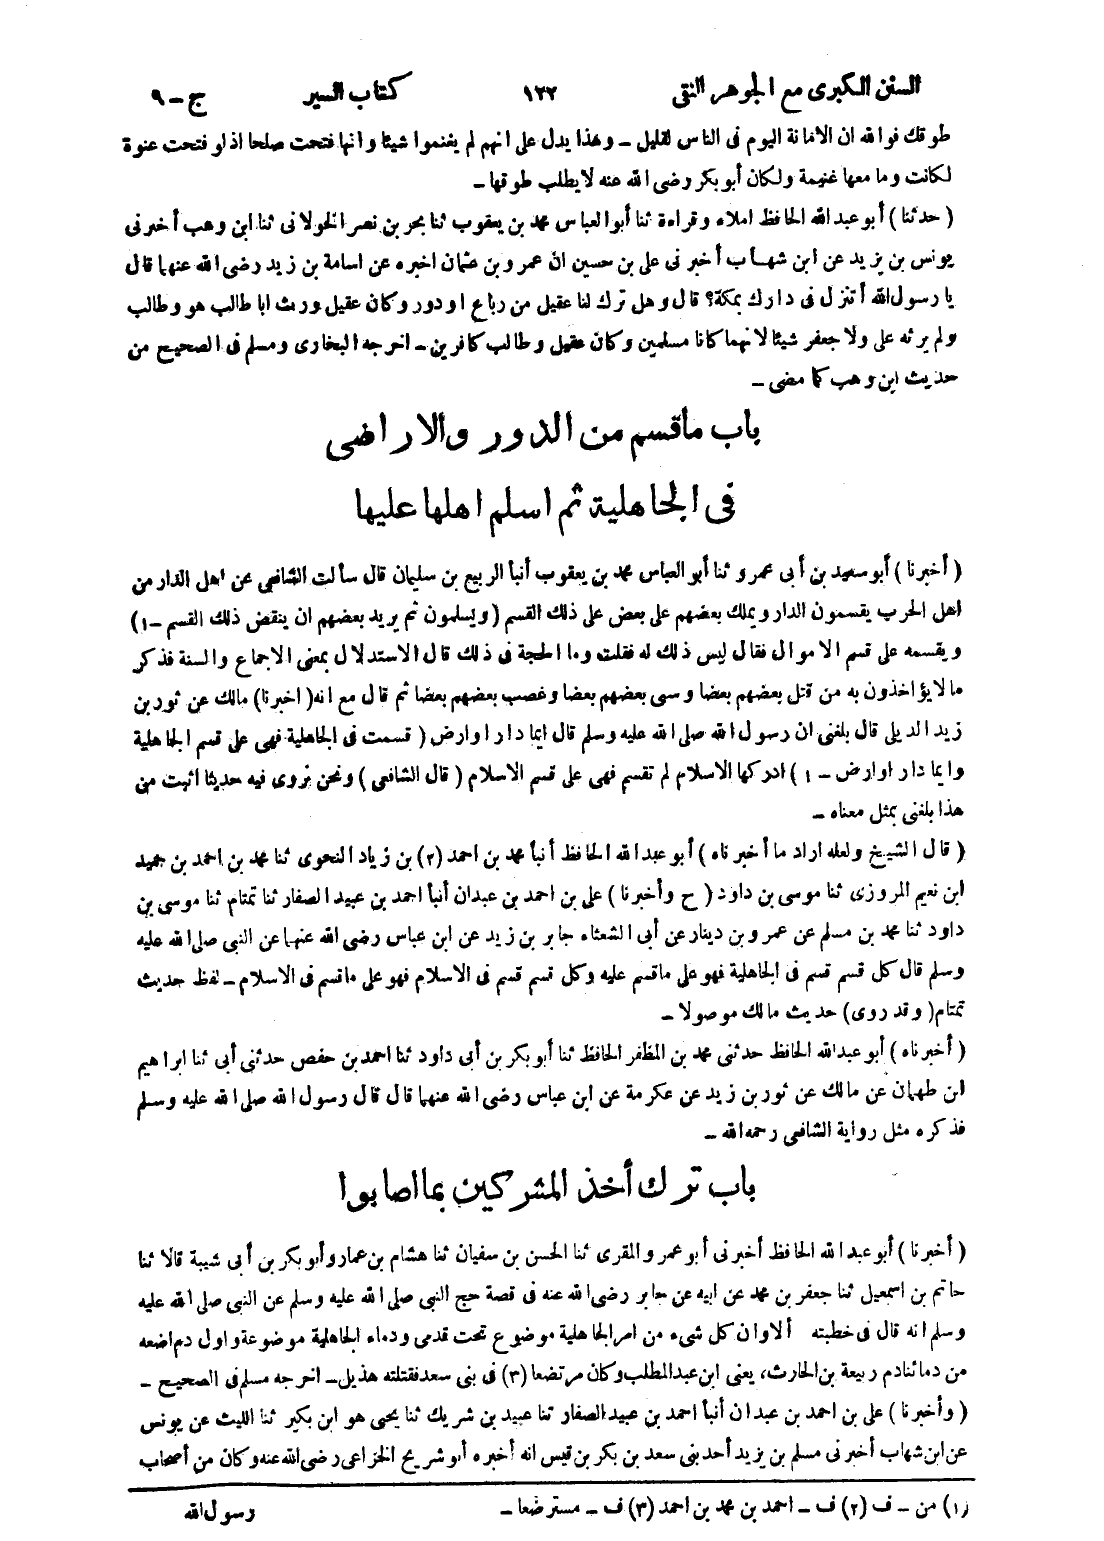 السنن الكبرى مع الجوهر النقى ١٢٢ كتاب السير ج - ٩
طوقك فوالله ان الامانة اليوم فى الناس لقليل - وهذا يدل على انهم لم يغنموا شيئا وانها فتحت صلحا اذ لو فتحت عنوة
لكانت وما معها غنيمة ولكان أبو بكر رضى الله عنه لا يطلب طوقها -
( حدثنا ) أبو عبد الله الحافظ املاء وقراءة ثنا أبو العباس محمد بن يعقوب ثنا بحر بن نصر الخولانى ثنا ابن وهب أخبرنى
يونس بن يزيد عن ابن شهاب أخبرنى على بن حسين ان عمرو بن عثمان اخبره عن اسامة بن زيد رضى الله عنهما قال
يا رسول الله أتنزل فى دارك بمكة؟ قال وهل ترك لنا عقيل من رباع او دور وكان عقيل ورث ابا طالب هو وطالب
ولم يرثه على ولا جعفر شيئا لانهما كانا مسلمين وكان عقيل وطالب كافرين - اخرجه البخارى ومسلم فى الصحيح من
حديث ابن وهب كما مضى -
باب ما قسم من الدور والاراضى
فى الجاهلية ثم اسلم اهلها عليها
( أخبرنا ) أبو سعيد بن أبى عمرو ثنا أبو العباس محمد بن يعقوب أنبأ الربيع بن سليمان قال سألت الشافعى عن اهل الدار من
اهل الحرب يقسمون الدار ويملك بعضهم على بعض على ذلك القسم ( ويسلمون ثم يريد بعضهم ان ينقض ذلك القسم - ١ )
ويقسمه على قسم الاموال فقال ليس ذلك له فقلت وما الحجة فى ذلك قال الاستدلال بمعنى الاجماع والسنة فذكر
ما لا يؤاخذون به من قتل بعضهم بعضا وسبى بعضهم بعضا وغصب بعضهم بعضا ثم قال مع انه ( اخبرنا ) مالك عن ثور بن
زيد الديلى قال بلغنى ان رسول الله صلى الله عليه وسلم قال ايما دار او ارض ( قسمت فى الجاهلية فهى على قسم الجاهلية
وايما دار او ارض - ١ ) ادركها الاسلام لم تقسم فهى على قسم الاسلام ( قال الشافعى ) ونحن نروى فيه حديثا اثبت من
هذا بلغنى بمثل معناه -
( قال الشيخ ولعله اراد ما أخبرناه ) أبو عبد الله الحافظ أنبأ محمد بن احمد (٢) بن زياد النحوى ثنا محمد بن احمد بن حميد
ابن نعيم المروزى ثنا موسى بن داود ( ح وأخبرنا ) على بن احمد بن عبدان أنبأ احمد بن عبيد الصفار ثنا تمتام ثنا موسى بن
داود ثنا محمد بن مسلم عن عمرو بن دينار عن أبى الشعثاء جابر بن زيد عن ابن عباس رضى الله عنهما عن النبى صلى الله عليه
وسلم قال كل قسم قسم فى الجاهلية فهو على ما قسم عليه وكل قسم قسم فى الاسلام فهو على ما قسم فى الاسلام - لفظ حديث
تمتام ( وقد روى ) حديث مالك موصولا -
( أخبرناه ) أبو عبد الله الحافظ حدثنى محمد بن المظفر الحافظ ثنا أبو بكر بن أبى داود ثنا احمد بن حفص حدثنى أبى ثنا ابراهيم
ابن طهمان عن مالك عن ثور بن زيد عن عكرمة عن ابن عباس رضى الله عنهما قال قال رسول الله صلى الله عليه وسلم
فذكره مثل رواية الشافعى رحمه الله -
باب ترك أخذ المشركين بما اصابوا
( أخبرنا ) أبو عبد الله الحافظ أخبرنى أبو عمرو المقرى ثنا الحسن بن سفيان ثنا هشام بن عمار وأبو بكر بن أبى شيبة قالا ثنا
حاتم بن اسمعيل ثنا جعفر بن محمد عن ابيه عن جابر رضى الله عنه فى قصة حج النبى صلى الله عليه وسلم عن النبى صلى الله عليه
وسلم انه قال فى خطبته ألا وان كل شىء من امر الجاهلية موضوع تحت قدمى ودماء الجاهلية موضوعة واول دم اضعه
من دمائنا دم ربيعة بن الحارث، يعنى ابن عبد المطلب وكان مرتضعا (٣) فى بنى سعد فقتلته هذيل - اخرجه مسلم فى الصحيح -
( وأخبرنا ) على بن احمد بن عبدان أنبأ احمد بن عبيد الصفار ثنا عبيد بن شريك ثنا يحيى هو ابن بكير ثنا الليث عن يونس
عن ابن شهاب أخبرنى مسلم بن يزيد أحد بنى سعد بن بكر بن قيس انه أخبره أبو شريح الخزاعى رضى الله عنه وكان من أصحاب
(١) من - ف (٢) ف - احمد بن محمد بن احمد (٣) ف - مسترضعا - رسول الله